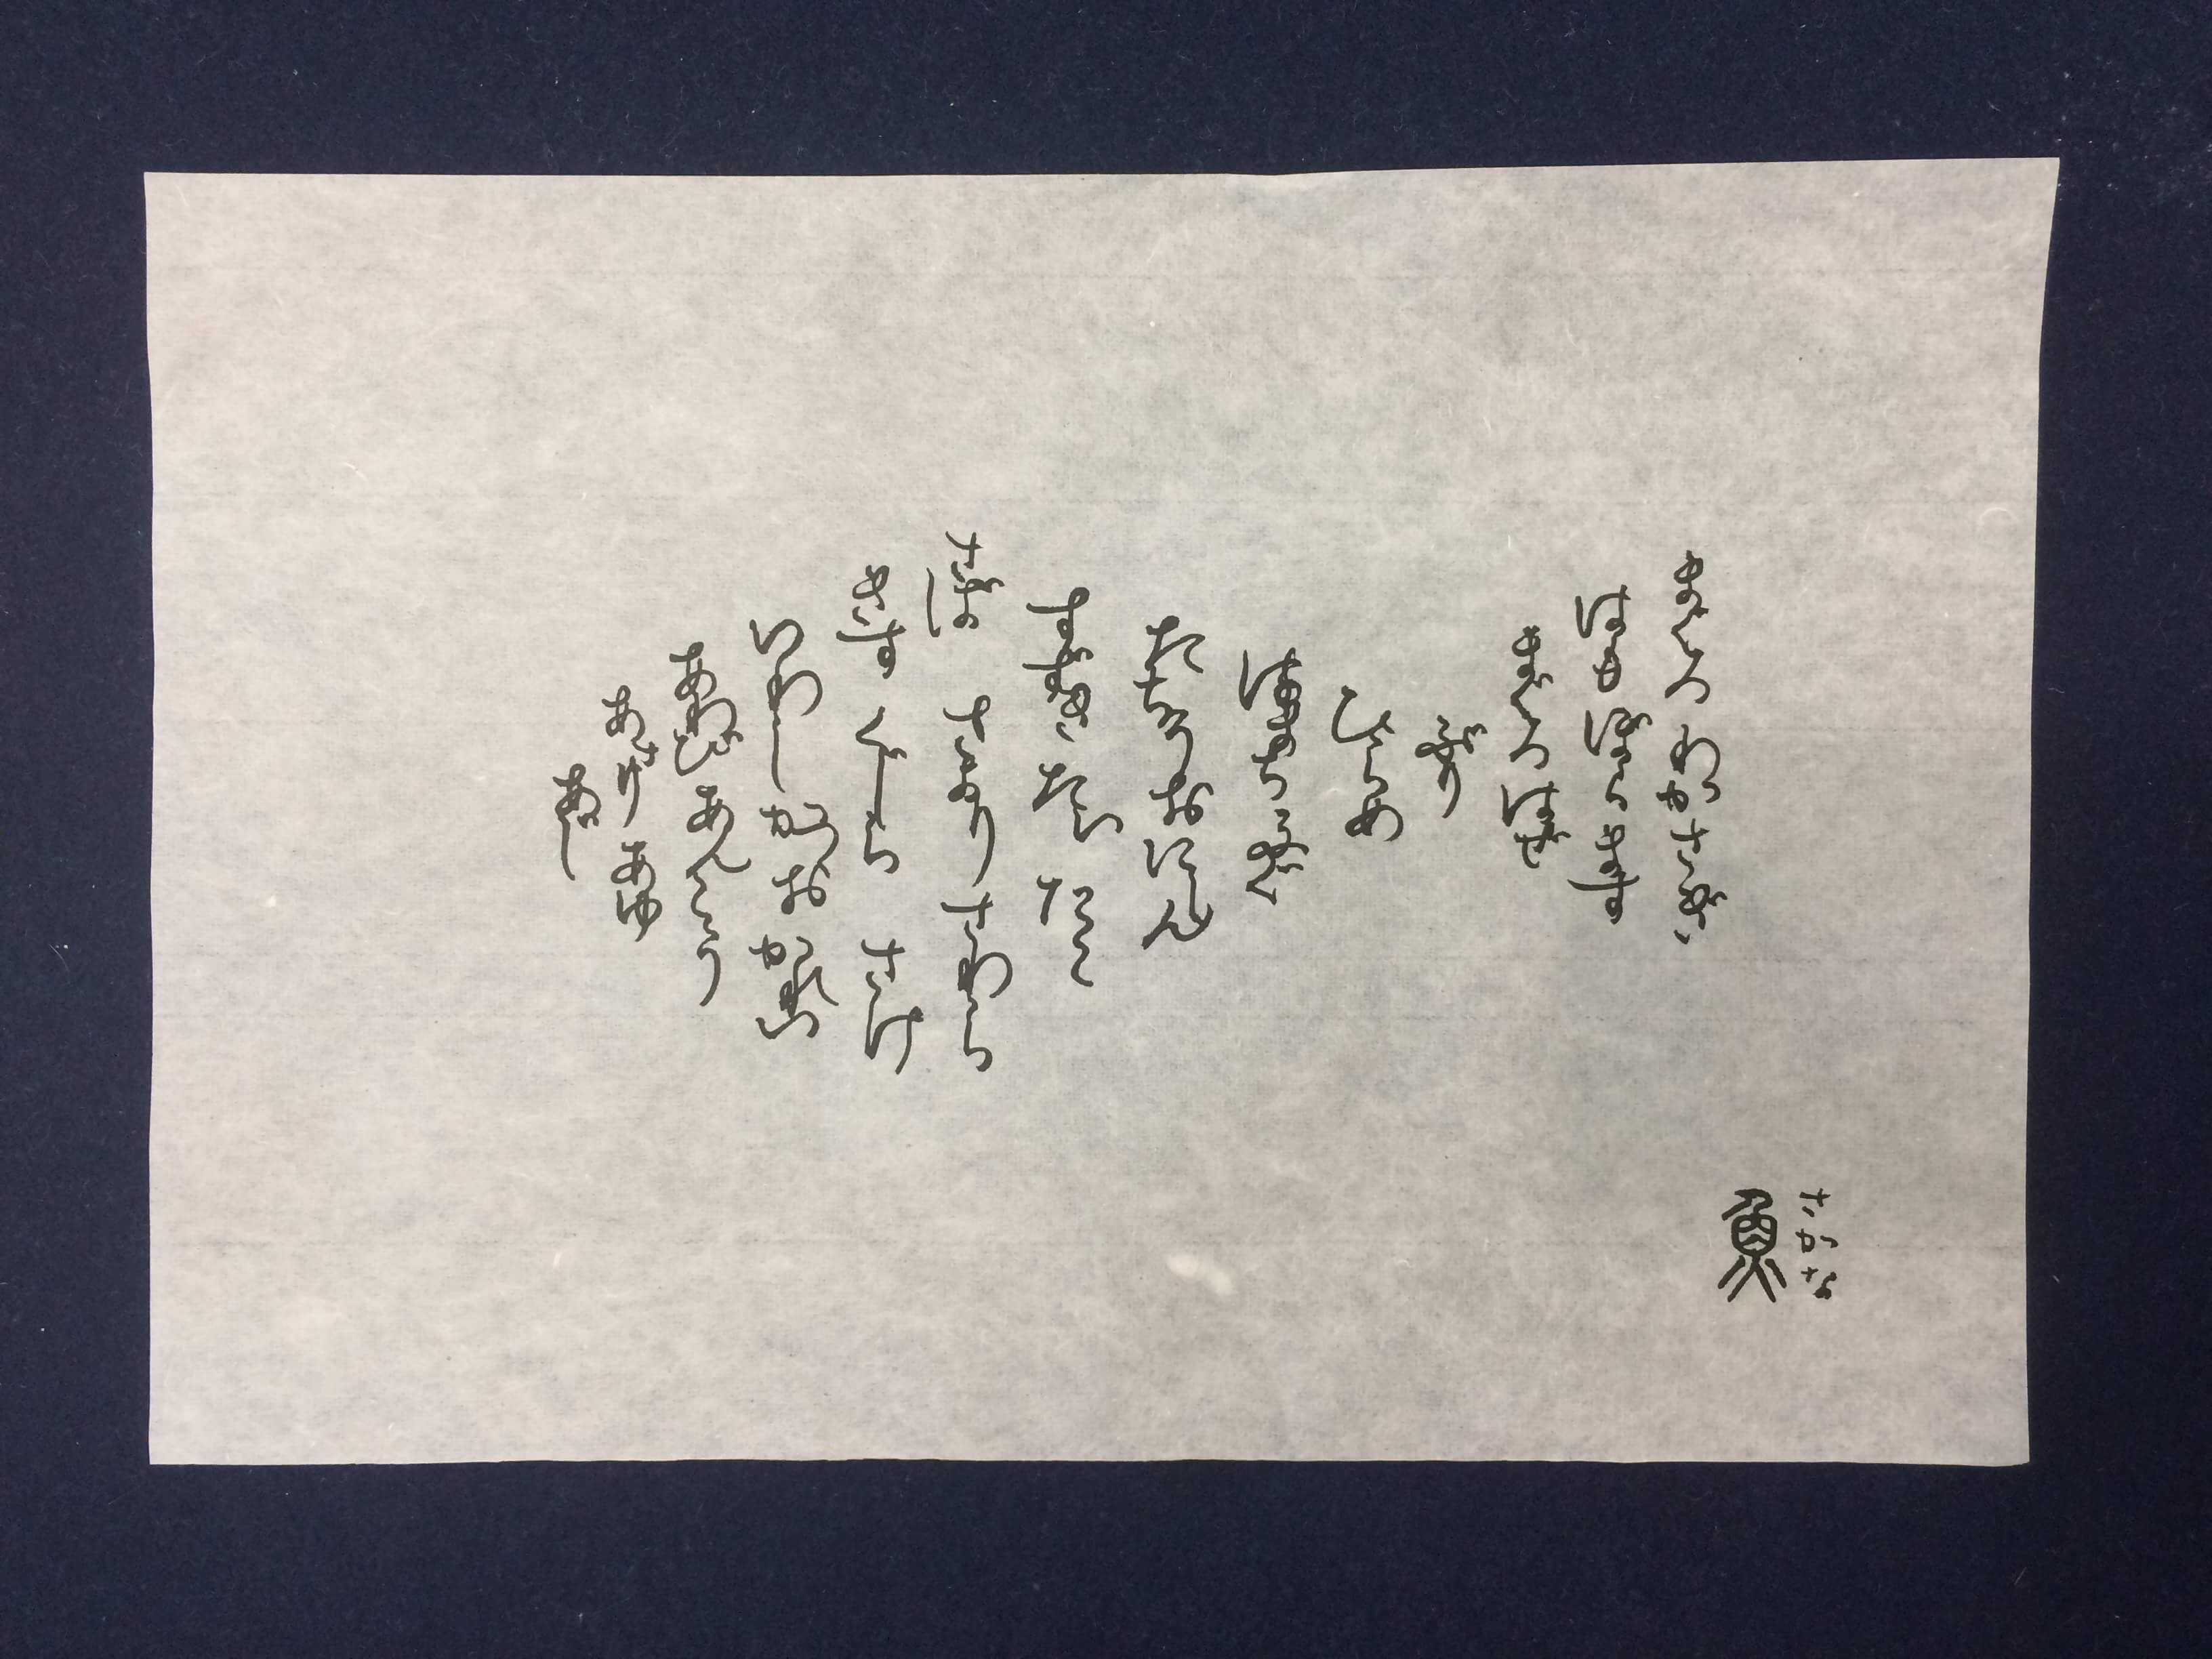 さかな
魚
わかさぎ
ます
まぐろ はぜ
ぶり
ひらめ
はまち ふぐ
たちうお にしん
すずき たら たこ
さば さより さわら
きす くじら さけ
いわし かつお かれい
あわび あんこう
あさり あゆ
あじ